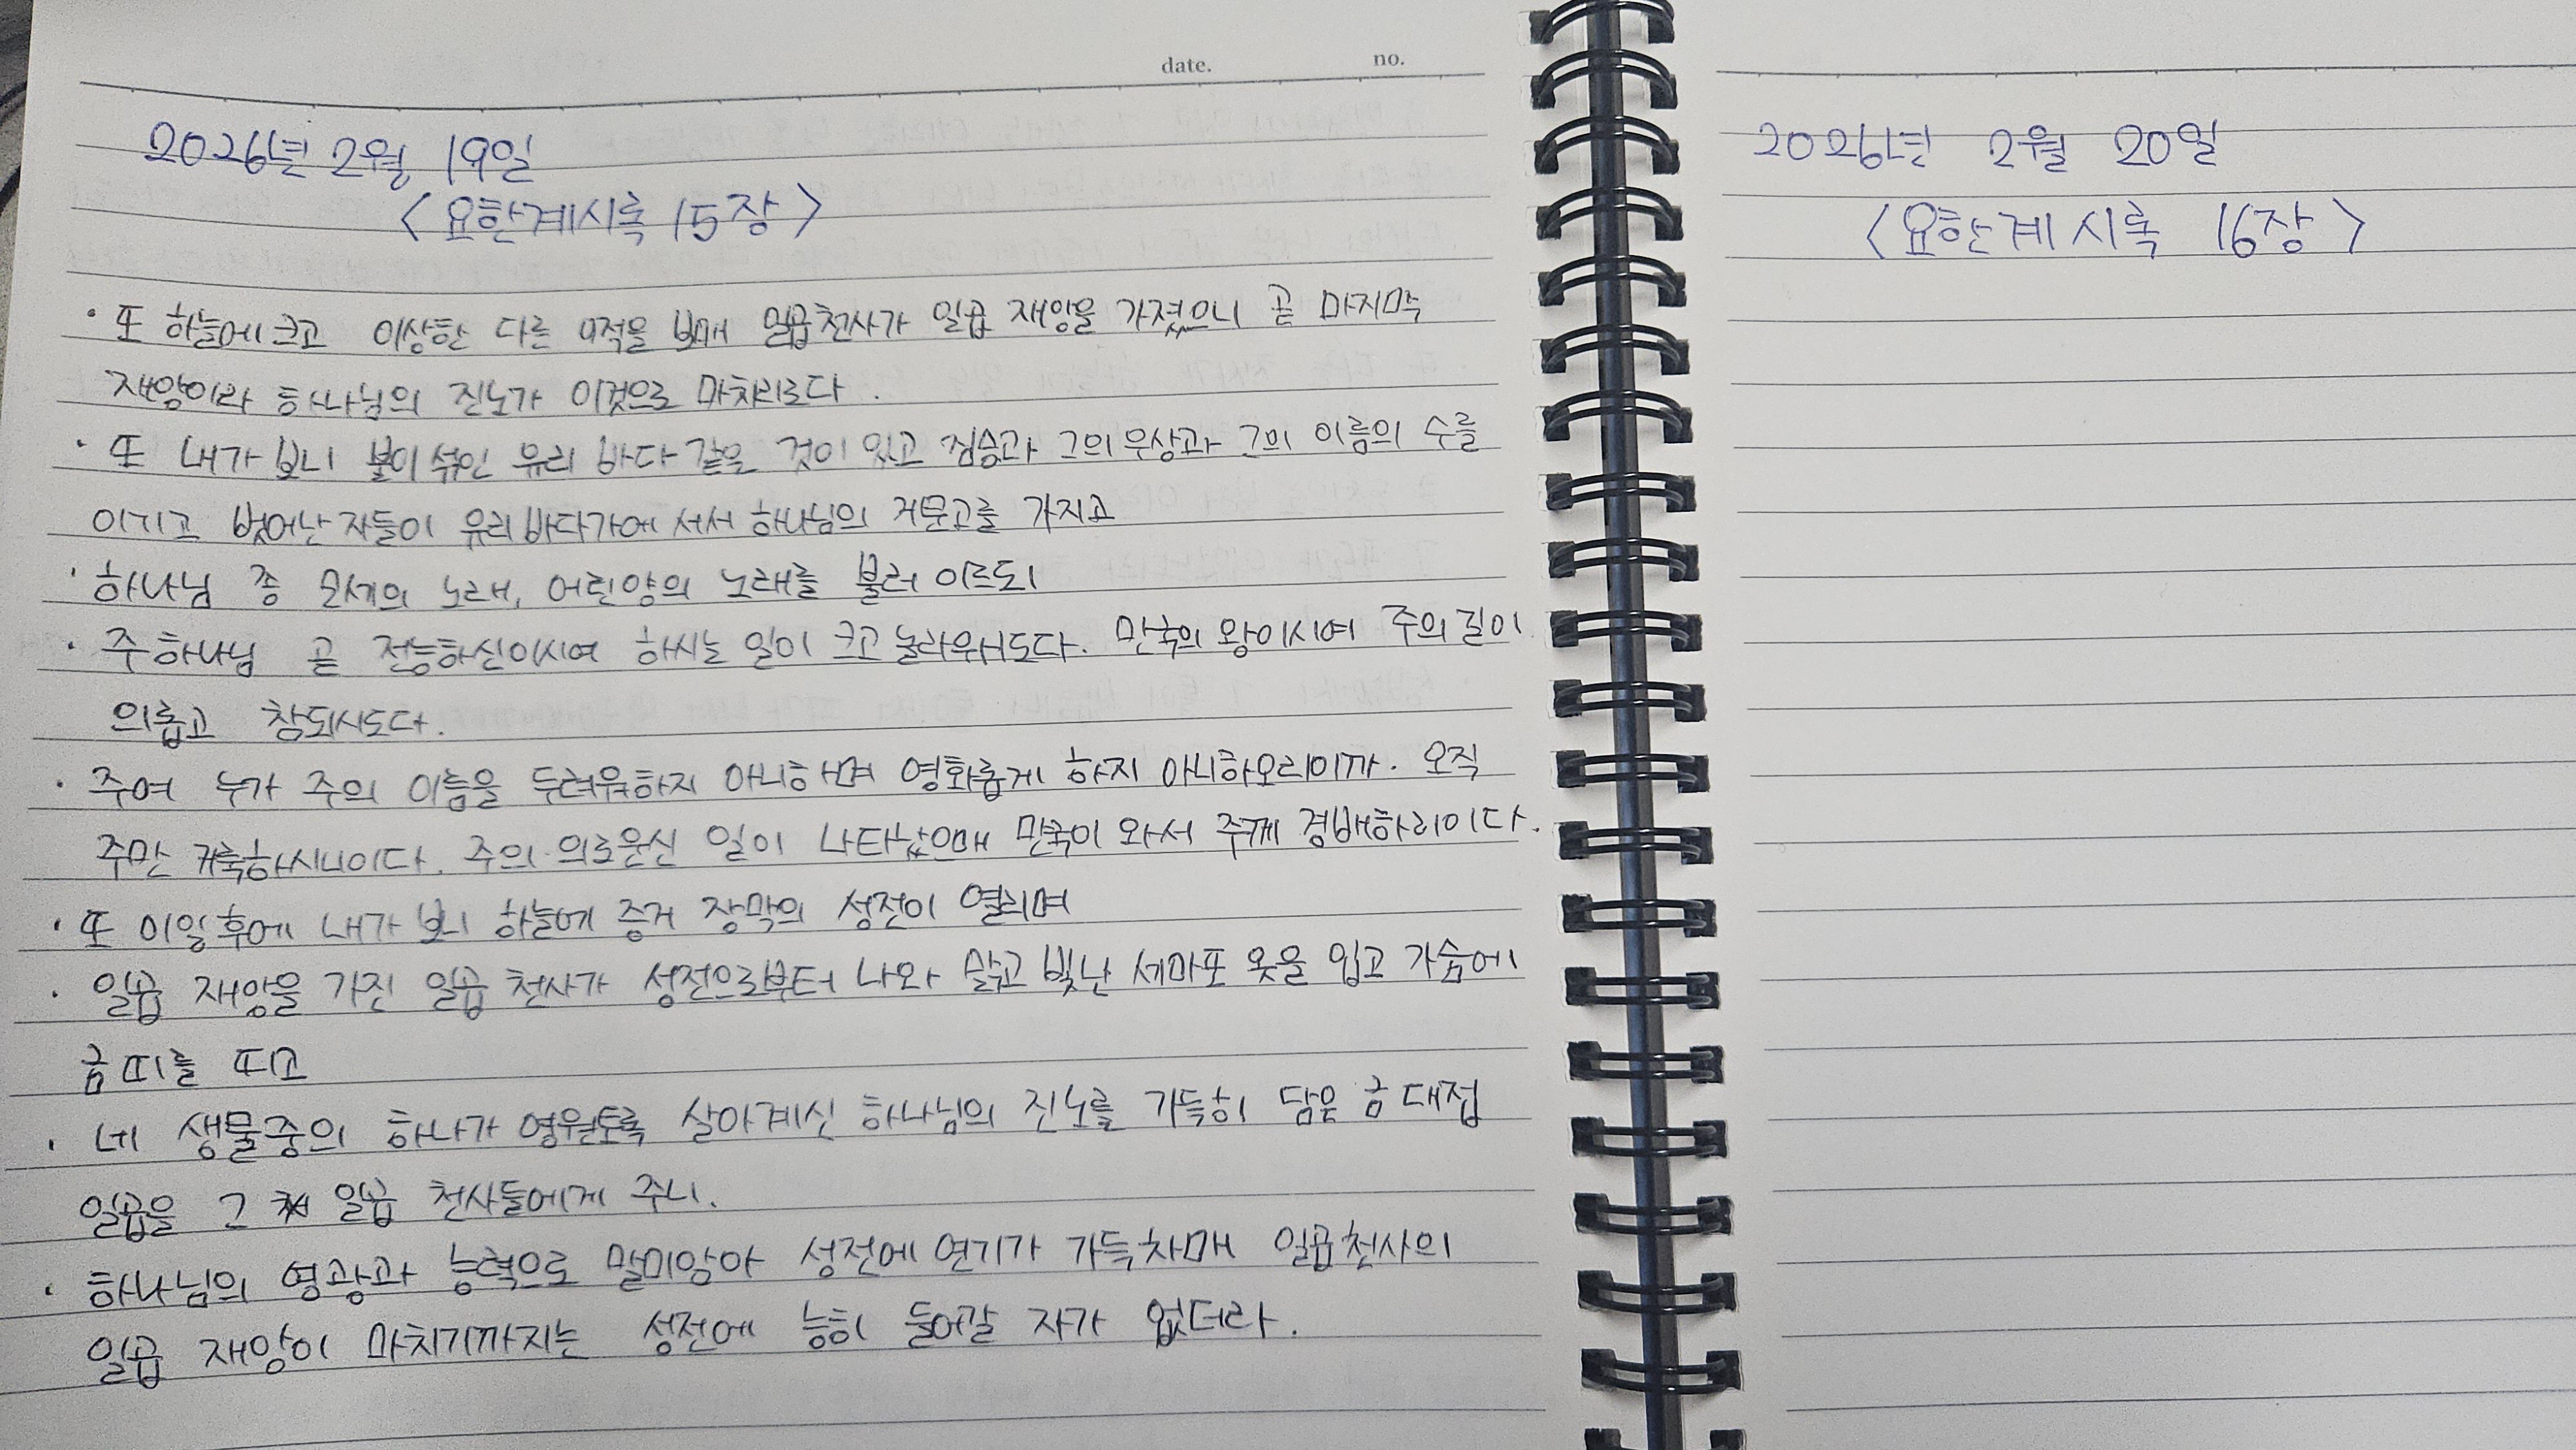 date. no.
2026년 2월 19일
<요한계시록 15장>
· 또 하늘에 크고 이상한 다른 이적을 보매 일곱 천사가 일곱 재앙을 가졌으니 곧 마지막
재앙이라 하나님의 진노가 이것으로 마치리로다.
· 또 내가 보니 불이 섞인 유리 바다 같은 것이 있고 짐승과 그의 우상과 그의 이름의 수를
이기고 벗어난 자들이 유리 바다가에 서서 하나님의 거문고를 가지고
· 하나님 종 모세의 노래, 어린양의 노래를 불러 이르되
· 주 하나님 곧 전능하신이시여 하시는 일이 크고 놀라우시도다. 만국의 왕이시여 주의 길이
의롭고 참되시도다.
· 주여 누가 주의 이름을 두려워하지 아니하며 영화롭게 하지 아니하오리이까. 오직
주만 거룩하시니이다. 주의 의로운신 일이 나타났으매 만국이 와서 주께 경배하리이다.
· 또 이일 후에 내가 보니 하늘에 증거 장막의 성전이 열리며
· 일곱 재앙을 가진 일곱 천사가 성전으로부터 나와 맑고 빛난 세마포 옷을 입고 가슴에
금띠를 띠고
· 네 생물중의 하나가 영원토록 살아계신 하나님의 진노를 가득히 담은 금 대접
일곱을 그 일곱 천사들에게 주니.
· 하나님의 영광과 능력으로 말미암아 성전에 연기가 가득차매 일곱 천사의
일곱 재앙이 마치기까지는 성전에 능히 들어갈 자가 없더라.
2026년 2월 20일
<요한계시록 16장>